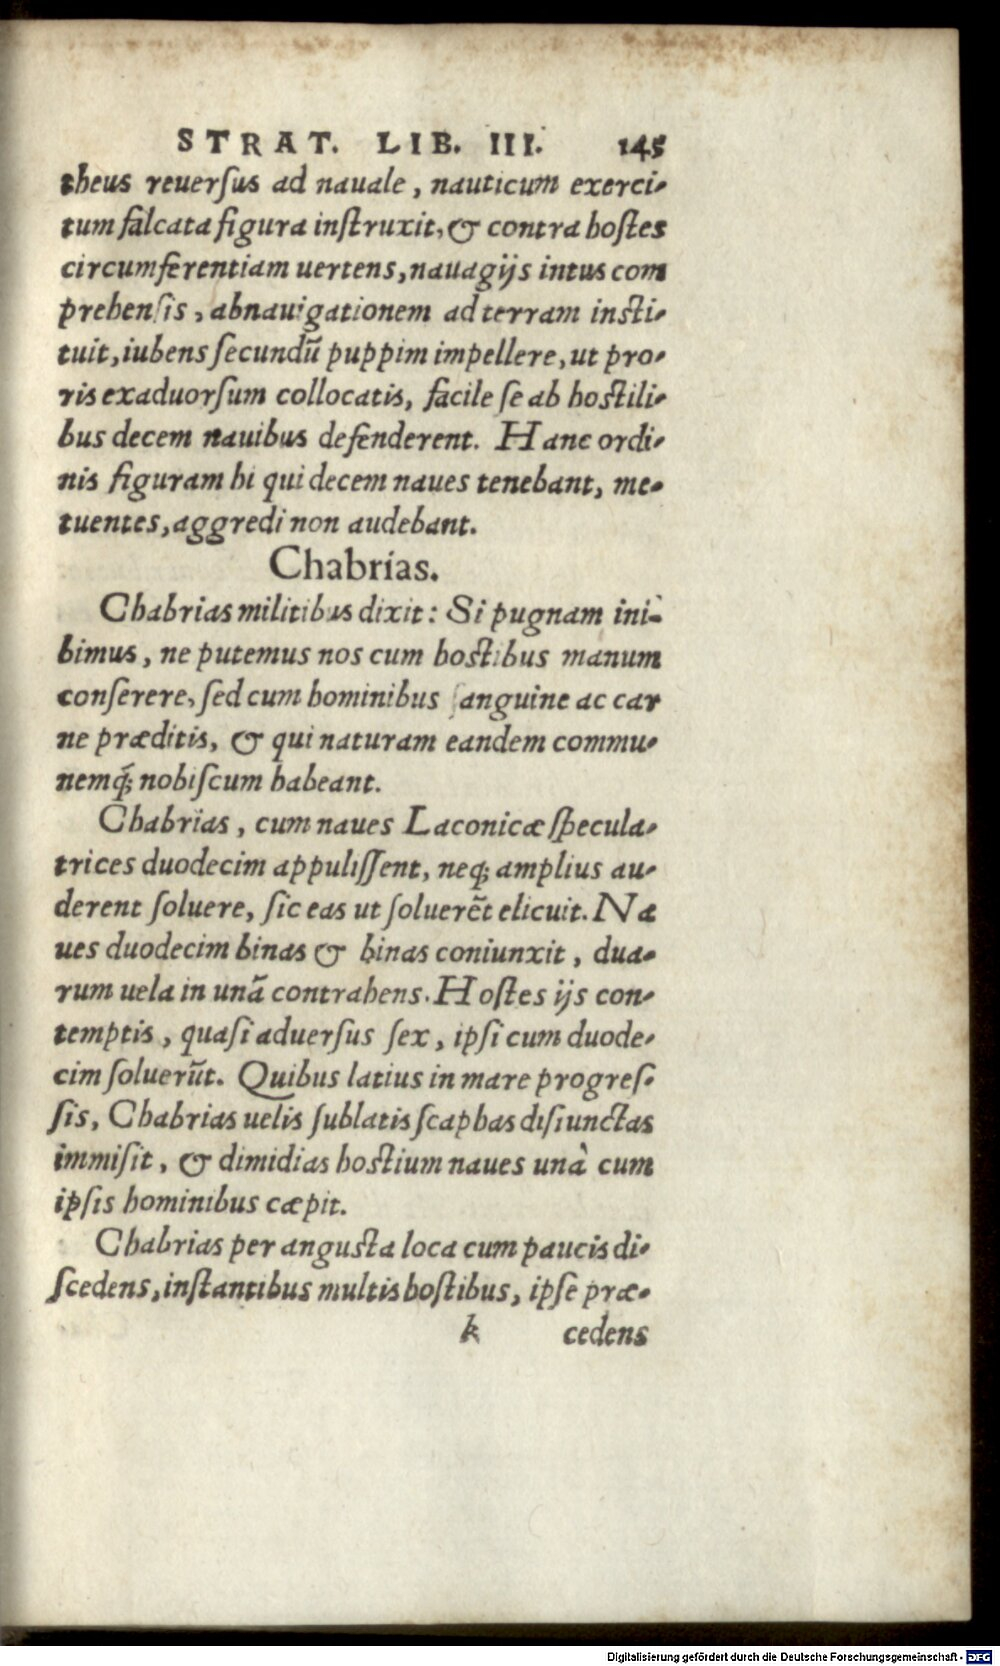 STRAT. LIB. III. 145
theus reuersus ad nauale, nauticum exerci-
tum falcata figura instruxit, & contra hostes
circumferentiam uertens, nauagijs intus com
prehensis, abnauigationem ad terram insti-
tuit, iubens secundũ puppim impellere, ut pro-
ris exaduorsum collocatis, facile se ab hostili-
bus decem nauibus defenderent. Hanc ordi-
nis figuram hi qui decem naues tenebant, me-
tuentes, aggredi non audebant.
Chabrias.
Chabrias militibus dixit: Si pugnam ini-
bimus, ne putemus nos cum hostibus manum
conserere, sed cum hominibus sanguine ac car
ne præditis, & qui naturam eandem commu-
nemq́; nobiscum habeant.
Chabrias, cum naues Laconicæ specula-
trices duodecim appulissent, neq; amplius au-
derent soluere, sic eas ut soluerẽt elicuit. Na
ues duodecim binas & binas coniunxit, dua-
rum uela in unã contrahens. Hostes ijs con-
temptis, quasi aduersus sex, ipsi cum duode-
cim soluerũt. Quibus latius in mare progres-
sis, Chabrias uelis sublatis scaphas disiunctas
immisit, & dimidias hostium naues unà cum
ipsis hominibus cæpit.
Chabrias per angusta loca cum paucis di-
scedens, instantibus multis hostibus, ipse præ-
k cedens
Digitalisierung gefördert durch die Deutsche Forschungsgemeinschaft - DFG